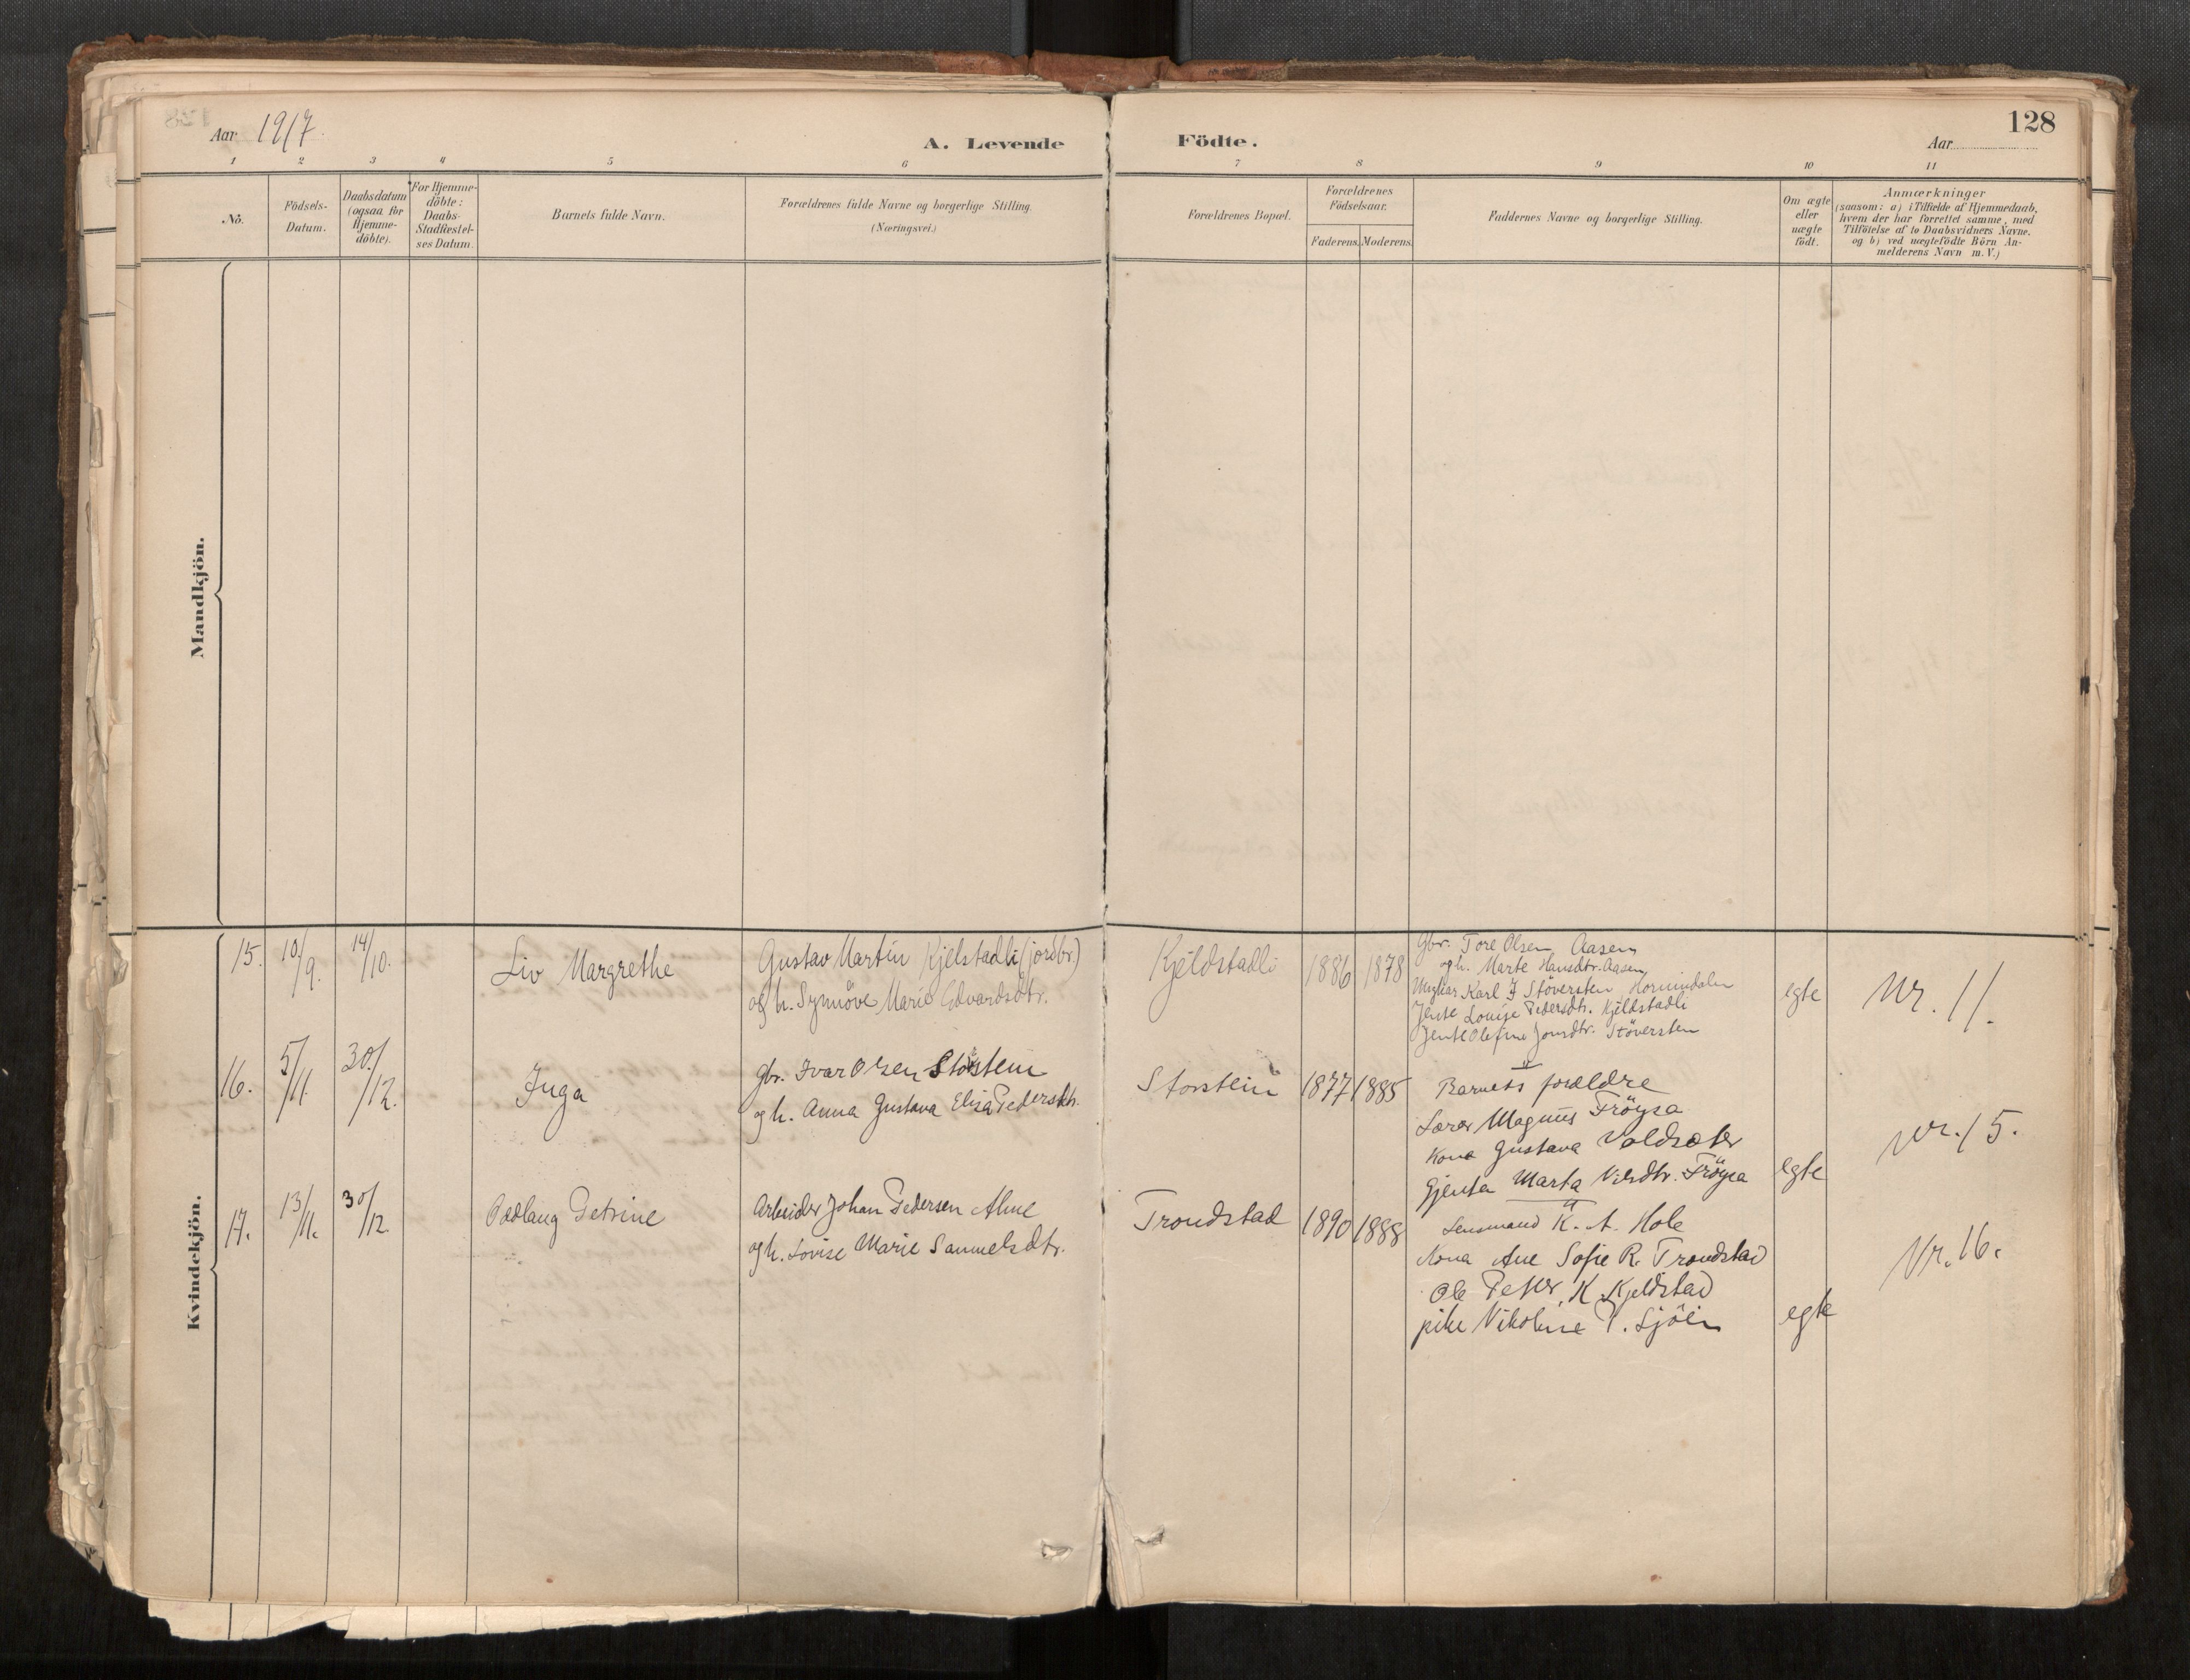 128
Aar 1917.
A. Levende Födte.
Aar
1 2 3 4 5 6 7 8 9 10 11
No.
Födsels-
Datum.
Daabsdatum
(ogsaa for
Hjemme-
döbte).
For Hjemme-
döbte:
Daabs-
Stadfæstel-
ses Datum.
Barnets fulde Navn.
Forældrenes fulde Navne og borgerlige Stilling.
(Næringsvei.)
Forældrenes Bopæl.
Forældrenes
Födselsaar.
Faderens.
Moderens.
Faddernes Navne og borgerlige Stilling.
Om ægte
eller
uægte
födt.
Anmærkninger
(saasom: a) i Tilfælde af Hjemmedaab,
hvem der har forrettet samme, med
Tilföielse af to Daabsvidners Navne.
og b) ved uægtefödte Börn An-
melderens Navn m.V.)
Mandkjön.
Kvindekjön.
15. 10/9. 14/10. Liv Margrethe
Gustav Martin Kjelstadli (jordbr.)
og h. Synnöve Marie Edvardsdtr.
Kjeldstadli 1886 1878
Gbr. Tore Olsen Aasen
og h. Marte Hansdtr. Aasen
Ungkar Karl J Stöversten Hornindalen
Jente Louise Pedersdtr. Kjeldstadli
Jente Olefine Jonsdtr. Stöversten
egte Nr. 11.
16. 5/11. 30/12. Inga
gbr. Ivar Olsen Storstein
og h. Anna Gustava Elisa Pedersdtr.
Storstein 1877 1885
Barnets forældre
Lærer Magnus Fröysa
Kona Gustava Voldsæter
Gjenta Marta Nilsdtr. Fröysa
egte Nr. 15.
17. 13/11. 30/12 Oddlaug Petrine
Arbeider Johan Pedersen Alme
og h. Lovise Marie Samuelsdtr.
Trondstad 1890 1888
Lensmand K. A. Hole
Kona Ane Sofie R. Trondstad
Ole Peter K. Kjeldstad
pike Nikoline P. Sjöen
egte Nr. 16.